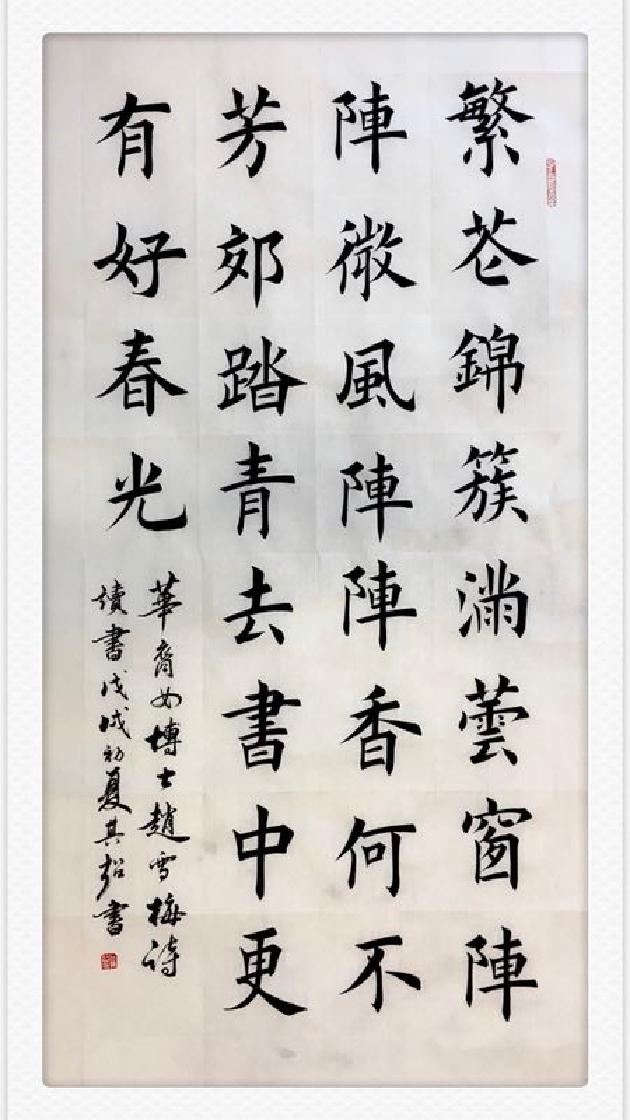 繁花錦簇滿蕓窗陣
陣微風陣陣香何不
芳郊踏青去書中更
有好春光
華裔女博士趙雪梅詩
讀書戊戌初夏其書